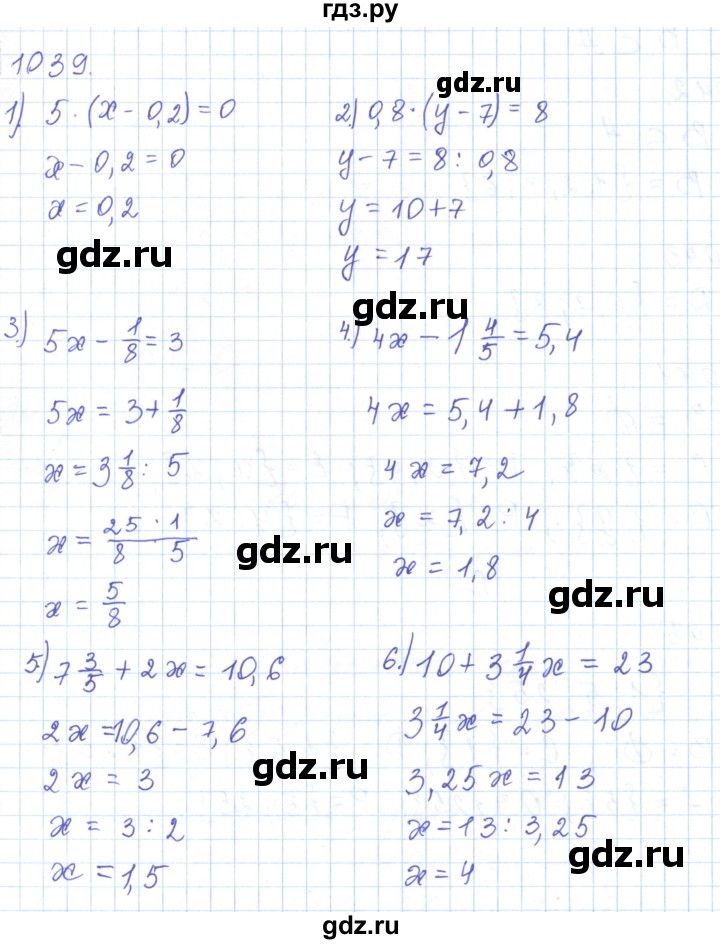 гдз.ру
1039.
1) 5 · (x − 0,2) = 0
x − 0,2 = 0
x = 0,2
gdz.ru
gdz.ru
2) 0,8 · (y − 7) = 8
y − 7 = 8 : 0,8
y = 10 + 7
y = 17
gdz.ru
3.) 5x − 1/8 = 3
5x = 3 + 1/8
x = 3 1/8 : 5
x = 25 · 1 / 8 · 5
x = 5/8
gdz.ru
4.) 4x − 1 4/5 = 5,4
4x = 5,4 + 1,8
4x = 7,2
x = 7,2 : 4
x = 1,8
gdz.ru
5.) 7 3/5 + 2x = 10,6
2x = 10,6 − 7,6
2x = 3
x = 3 : 2
x = 1,5
gdz.ru
6.) 10 + 3 1/4 x = 23
3 1/4 x = 23 − 10
3,25x = 13
x = 13 : 3,25
x = 4
gdz.ru
gdz.ru